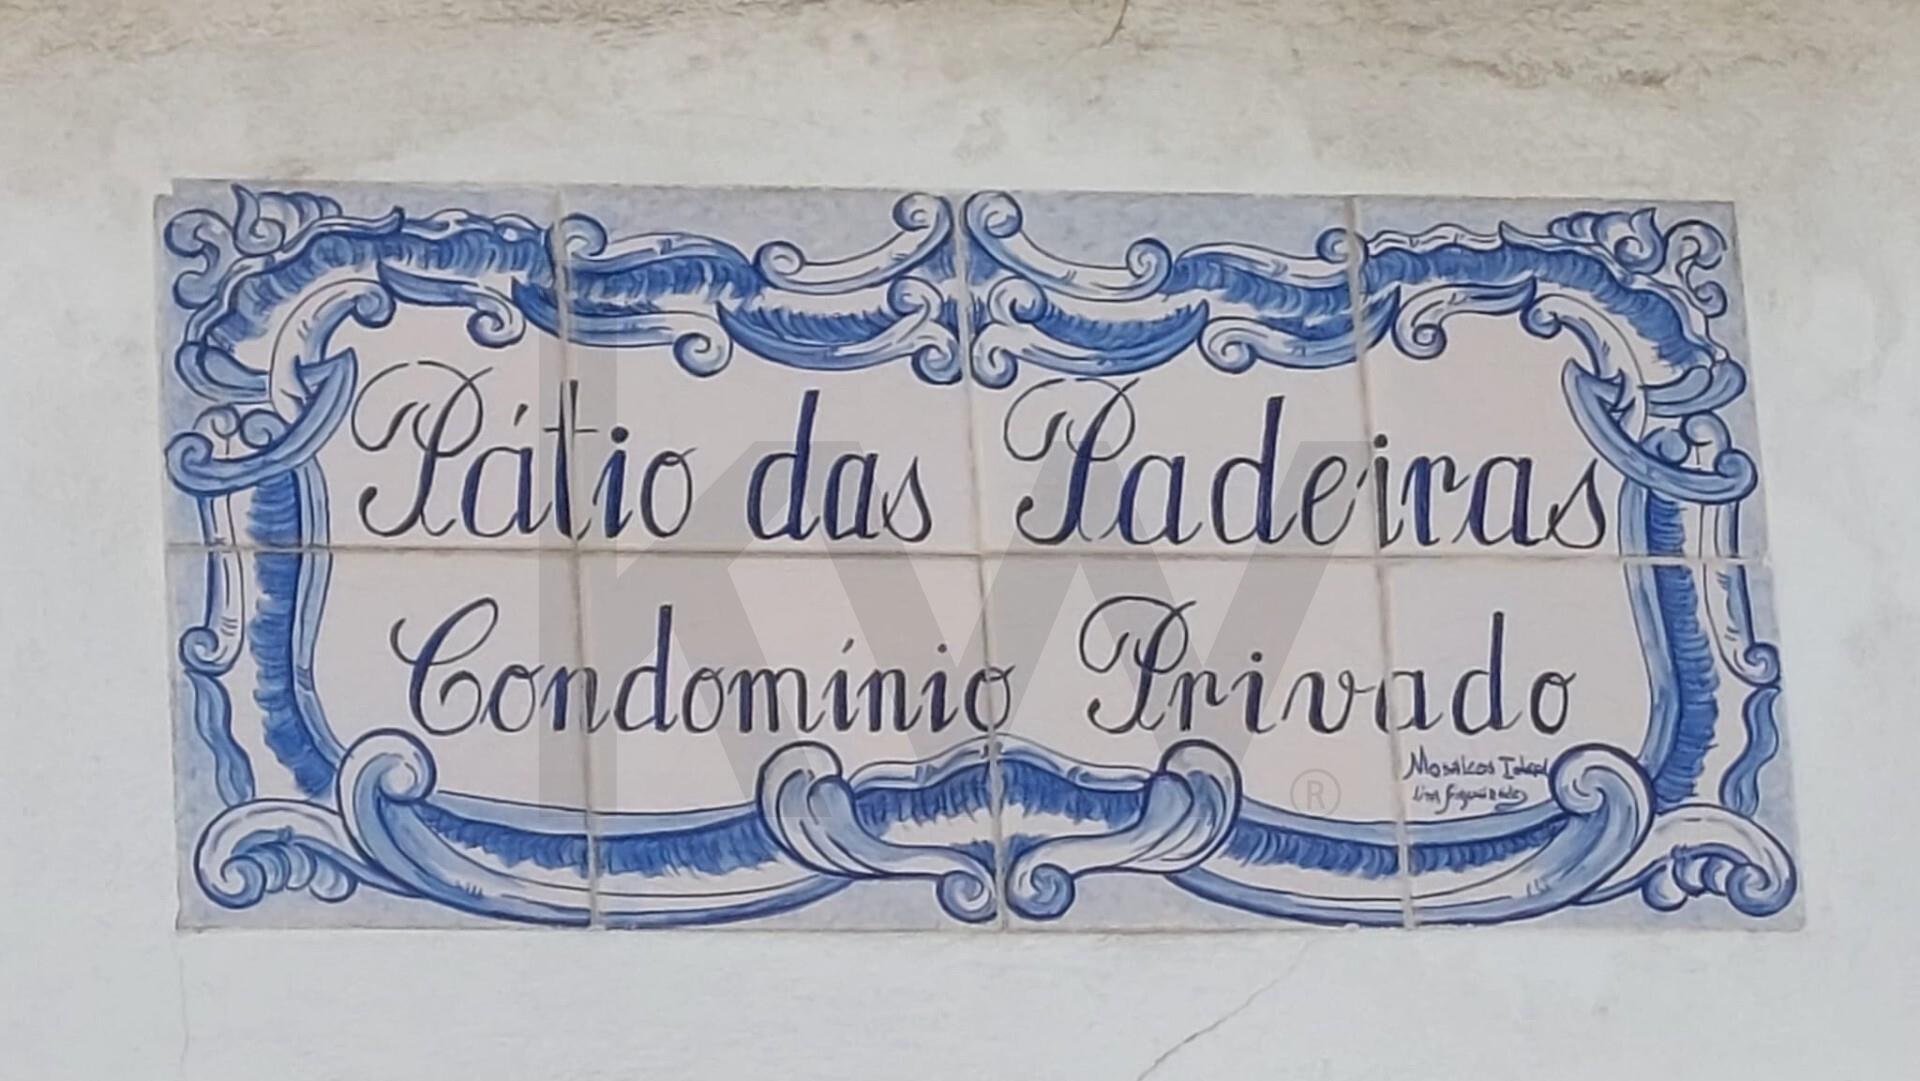 Pátio das Padeiras
Condomínio Privado
Mosaicos
KW®